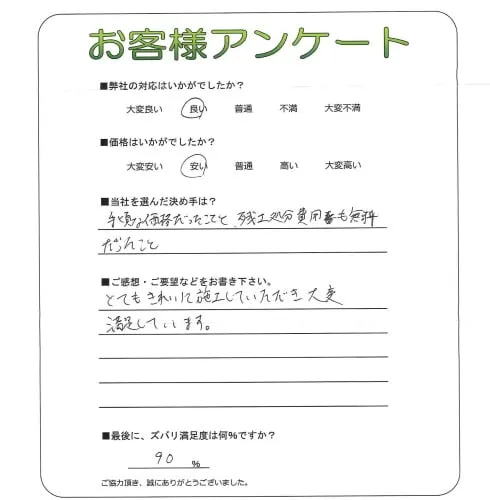 お客様アンケート
■弊社の対応はいかがでしたか？
大変良い 良い 普通 不満 大変不満
■価格はいかがでしたか？
大変安い 安い 普通 高い 大変高い
■当社を選んだ決め手は？
手頃な価格だったことと、残土処分費用も無料
だったこと
■ご感想・ご要望などをお書き下さい。
とてもきれいに施工していただき大変
満足しています。
■最後に、ズバリ満足度は何％ですか？
90 ％
ご協力頂き、誠にありがとうございました。